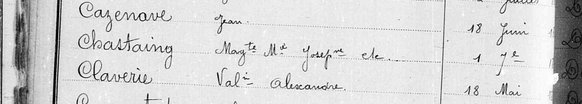 Cazenave Jean 18 Juin
Chastaing Mag^te M^e Josep^ne etc 1 7^e
Claverie Val^in Alexandre. 18 Mai